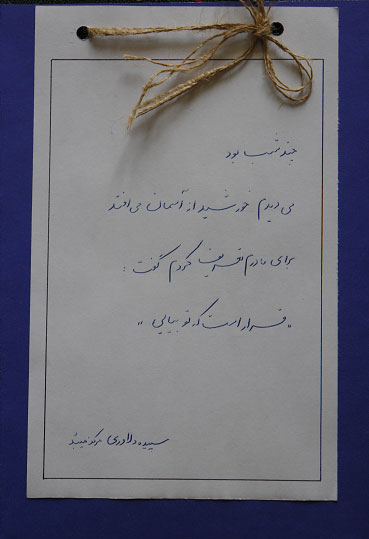 چند شب بود
می دیدم خورشید از آسمان می افتد
برای مادرم تعریف کردم گفت :
" قرار است که تو بیایی "
سپیده دلاوری مرکز میبد